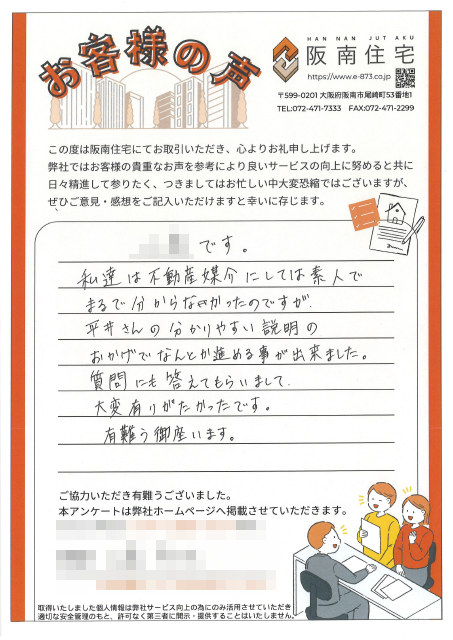 お客様の声
HAN NAN JUTAKU
阪南住宅
https://www.e-873.co.jp
〒599-0201 大阪府阪南市尾崎町53番地1
TEL:072-471-7333 FAX:072-471-2299
この度は阪南住宅にてお取引いただき、心よりお礼申し上げます。
弊社ではお客様の貴重なお声を参考により良いサービスの向上に努めると共に
日々精進して参りたく、つきましてはお忙しい中大変恐縮ではございますが、
ぜひご意見・感想をご記入いただけますと幸いに存じます。
です。
私達は不動産媒介にしては素人で
まるで分からなかったのですが、
平井さんの分かりやすい説明の
おかげでなんとか進める事が出来ました。
質問にも答えてもらいまして、
大変有りがたかったです。
有難う御座います。
ご協力いただき有難うございました。
本アンケートは弊社ホームページへ掲載させていただきます。
取得いたしました個人情報は弊社サービス向上の為にのみ活用させていただき
適切な安全管理のもと、許可なく第三者に開示・提供することはいたしません。